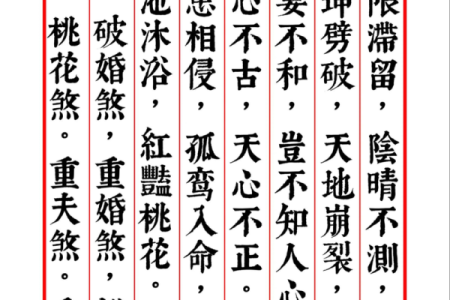 限滯留，陰晴不測，
坤劈破，天地崩裂，
妻不和，豈不知人心
心不古，天心不正。
相侵，孤鸾入命，
池沐浴，紅豔桃花。
破婚煞，重婚煞，
桃花煞。重夫煞。